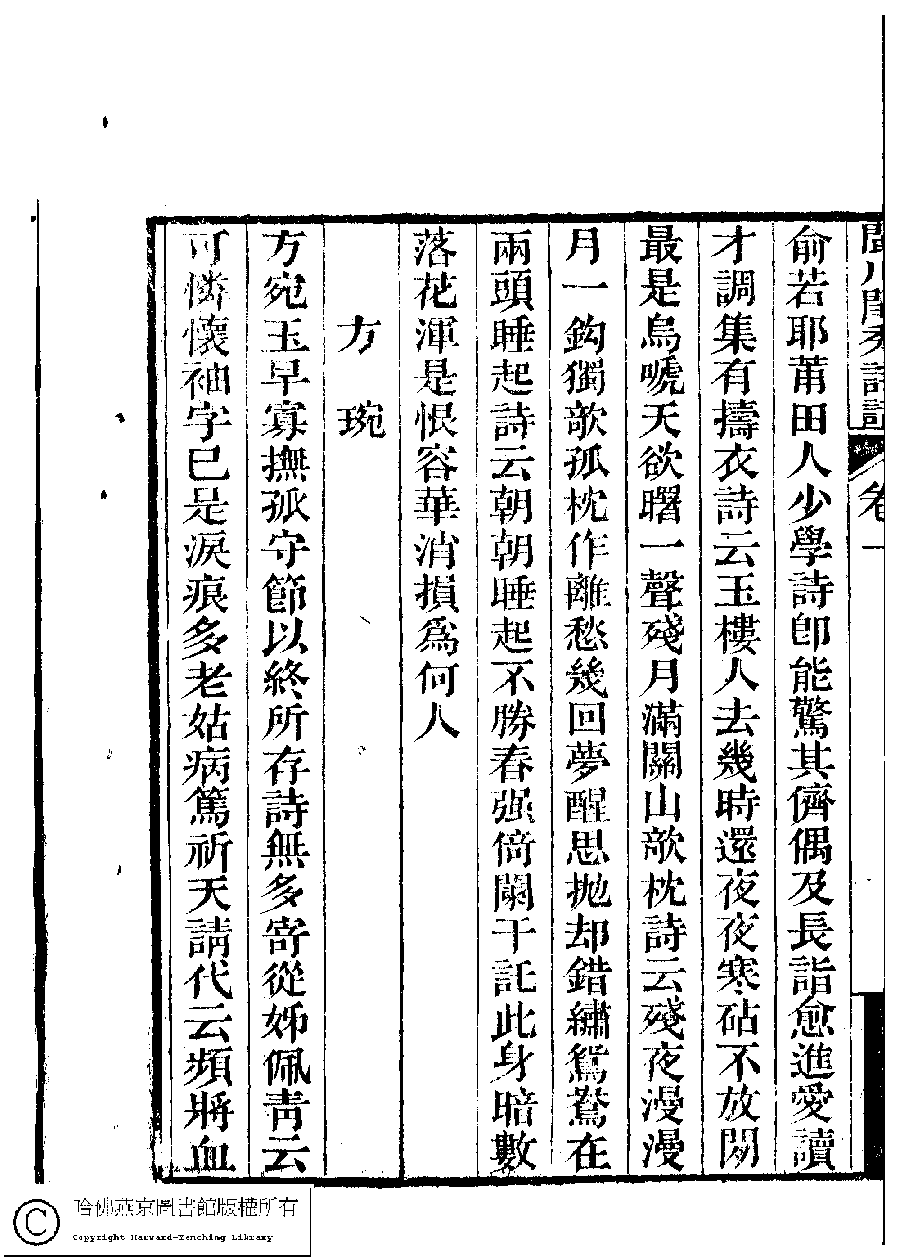 閨秀詩話 卷一
俞若耶莆田人少學詩卽能驚其儕偶及長詣愈進愛讀
才調集有擣衣詩云玉樓人去幾時還夜夜寒砧不放閒
最是烏嗁天欲曙一聲殘月滿關山欹枕詩云殘夜漫漫
月一鈎獨欹孤枕作離愁幾回夢醒思抛却錯繡鴛鴦在
兩頭睡起詩云朝朝睡起不勝春强倚闌干託此身暗數
落花渾是恨容華消損爲何人
方琬
方宛玉早寡撫孤守節以終所存詩無多寄從姊佩青云
可憐懷袖字已是淚痕多老姑病篤祈天請代云頻將血
哈佛燕京圖書館版權所有
Copyright Harvard-Yenching Library